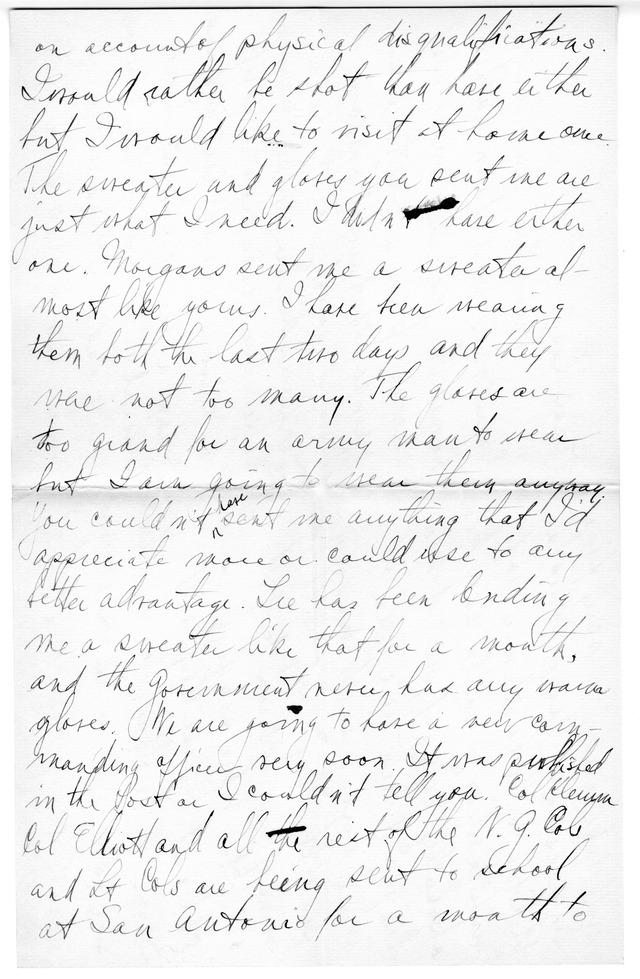 on account of physical disqualifications.
I would rather be shot than have either
but I would like to visit at home once.
The sweater and gloves you sent me are
just what I need. I didn't have either
one. Morgans sent me a sweater al-
most like yours. I have been wearing
them both the last two days and they
were not too many. The gloves are
too grand for an army man to wear
but I am going to wear them anyway.
You couldn't have sent me anything that I'd
appreciate more or could use to any
better advantage. Lee has been lending
me a sweater like that for a month,
and the Government never has any warm
gloves. We are going to have a new com-
manding officer very soon. It was published
in the Post or I couldn't tell you. Col Clemm
Col Elliott and all the rest of the N. G. Cols
and Lt Cols are being sent to school
at San Antonio for a month to